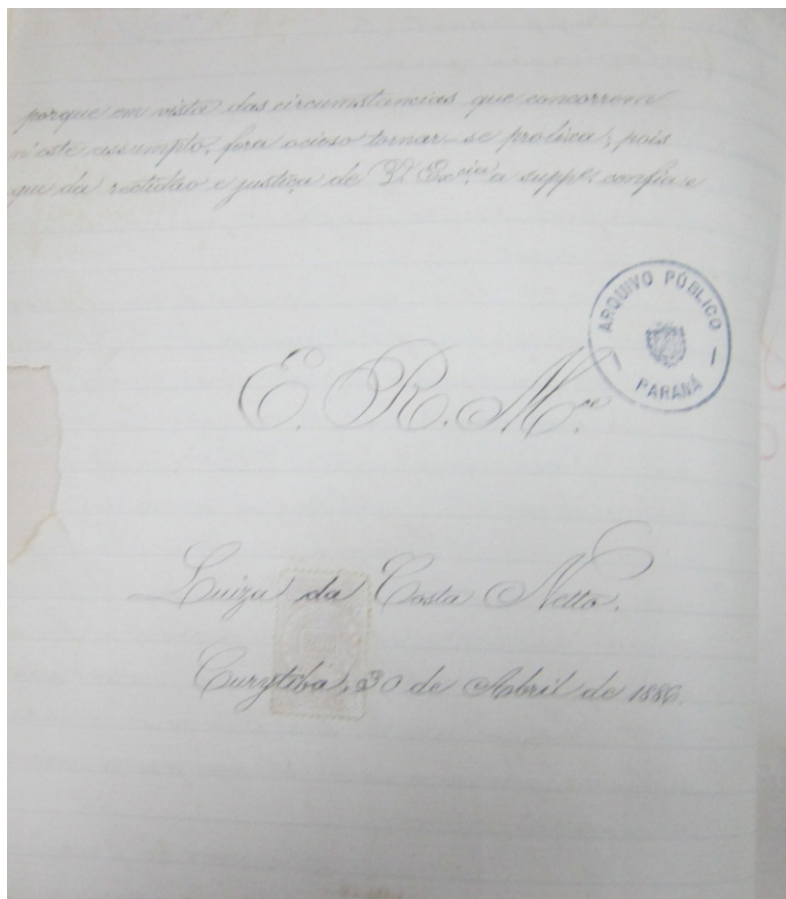 porque em vista das circumstancias que concorrem
n'este assumpto, fora ocioso tornar-se prolixa; pois
que da rectidão e justiça de V. Excia a suppe. confia e
ARQUIVO PÚBLICO
PARANÁ
E. R. Mce.
Luiza da Costa Netto.
Curytiba, 30 de Abril de 1886.